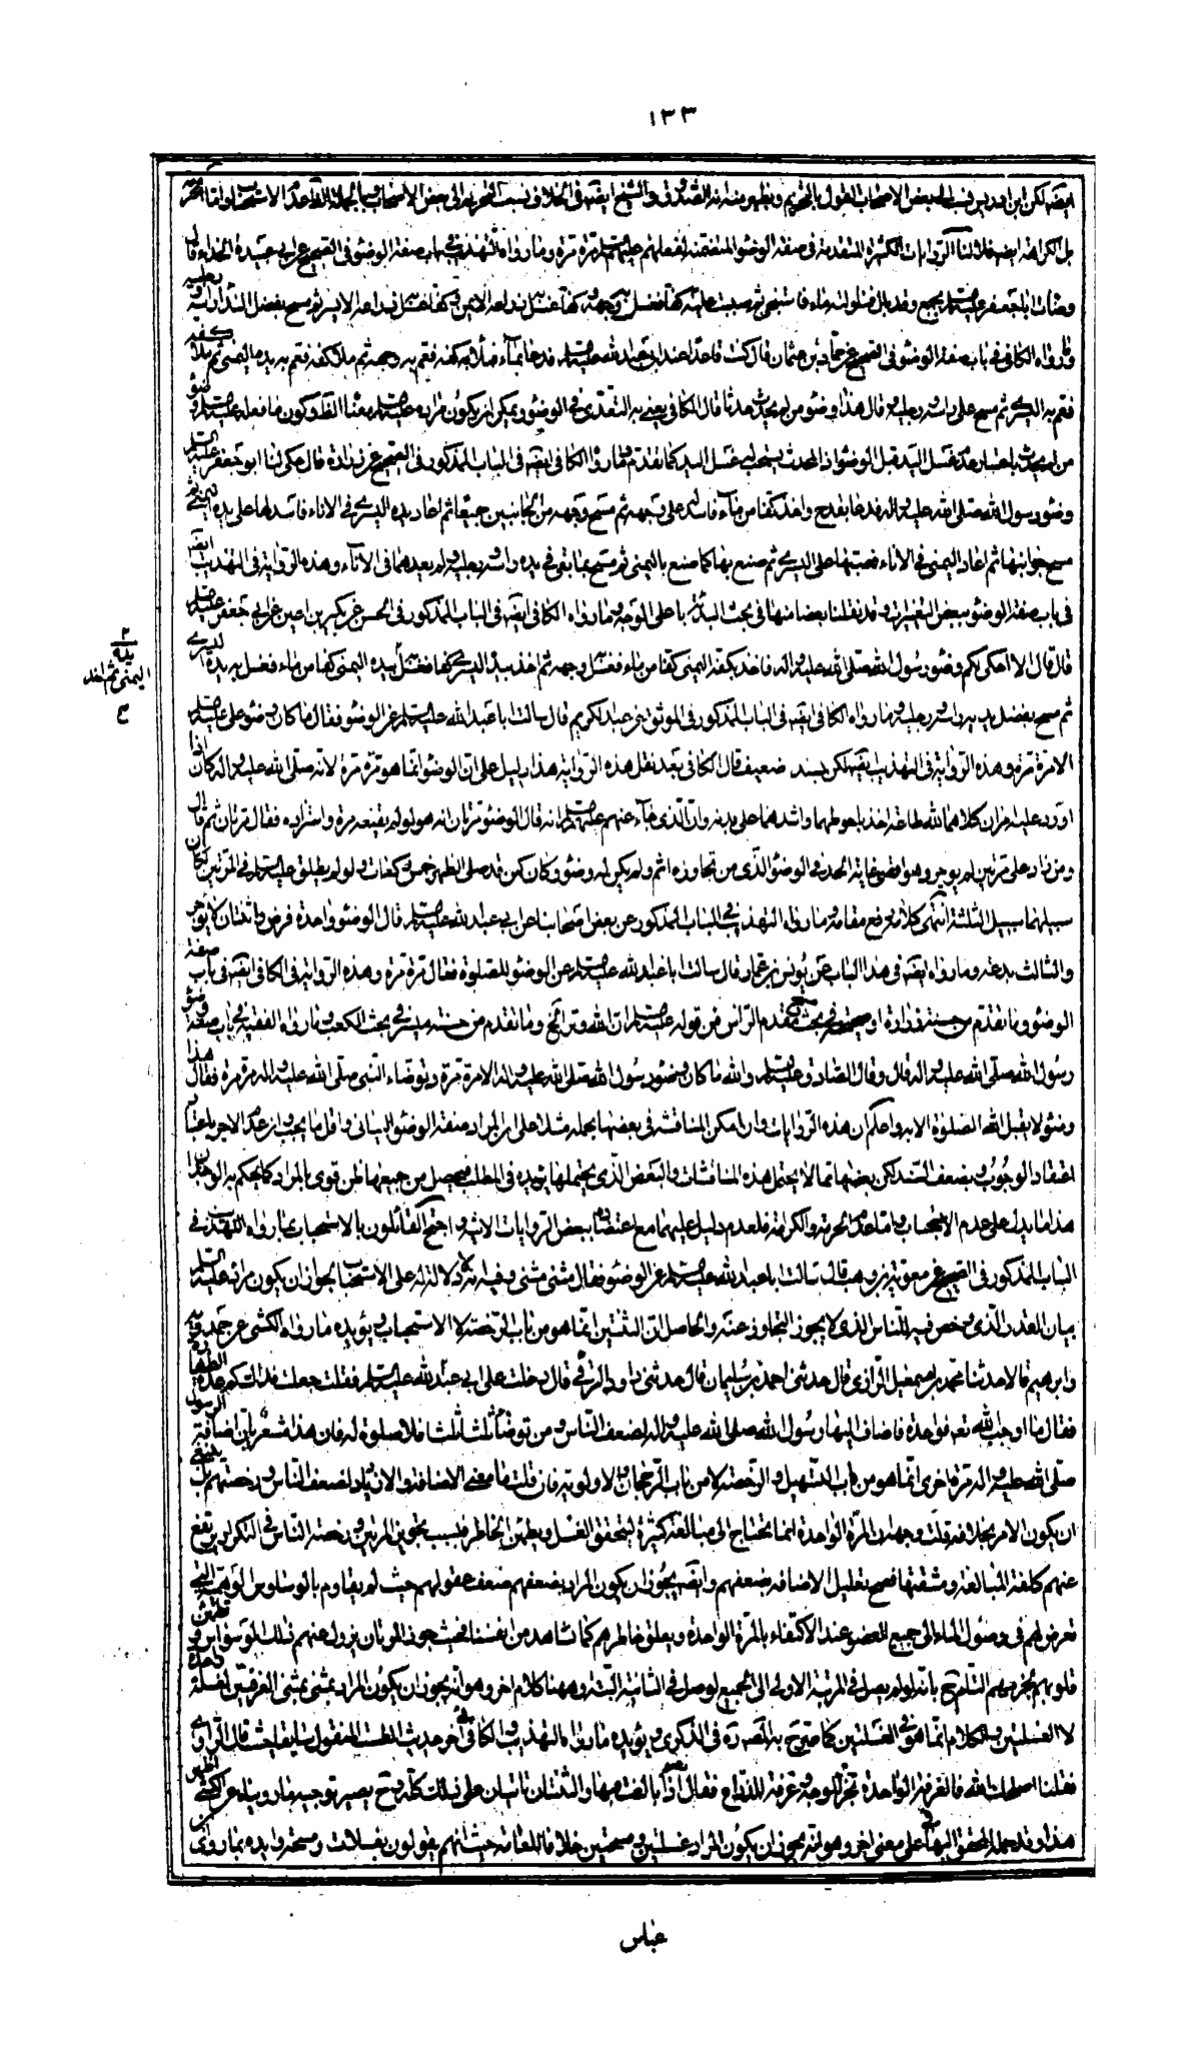 ١٣٣
ايضا لكن ابن ادريس نسب الى بعض الاصحاب القول بالتحريم ويظهر منه انه الصدوق والشيخ ايضا في الخلاف نسب التحريم الى بعض الاصحاب وبالجملة الظاهر عدم الاستحباب واما التحريم
بل الكراهة ايضا فلا لنا الروايات الكثيرة المتقدمة في صفة الوضوء المتضمنة لفعلهم عليهم السلام مرة مرة وما رواه التهذيب في باب صفة الوضوء في الصحيح عن ابي عبيدة الحذاء قال
وضأت ابا جعفر عليه السلام بجمع وقد بال فناولته ماء فاستنجى ثم صببت عليه كفا فغسل به وجهه وكفا غسل به ذراعه الايمن وكفا غسل به ذراعه الايسر ثم مسح بفضل الندا راسه ورجليه
وما رواه الكافي في باب صفة الوضوء في الصحيح عن حماد بن عثمان قال كنت قاعدا عند ابي عبد الله عليه السلام فدعا بماء فملأ به كفه فعم به وجهه ثم ملأ كفه فعم به يده اليمنى ثم ملأ كفه
فعم به اليسرى ثم مسح على راسه ورجليه وقال هذا وضوء من لم يحدث حدثا قال الكافي يعني به التعدي في الوضوء ويمكن ان يكون مراده عليه السلام معناه الظ وكون ما فعله عليه السلام وضوء
من لم يحدث باعتبار عدم غسل اليد قبل الوضوء اذ المحدث يستحب له غسل اليد كما تقدم وما رواه الكافي ايضا في الباب المذكور في الصحيح عن زرارة قال حكى لنا ابو جعفر عليه السلام
وضوء رسول الله صلى الله عليه واله فدعا بقدح واخذ كفا من ماء فاسدله على وجهه ثم مسح وجهه من الجانبين جميعا ثم اعاد يده اليسرى في الاناء فاسدلها على يده اليمنى ثم
مسح جوانبها ثم اعاد اليمنى في الاناء فصبها على اليسرى ثم صنع بها كما صنع باليمنى ثم مسح بما بقى في يده راسه ورجليه ولم يعدهما في الاناء وهذه الرواية في التهذيب ايضا
في باب صفة الوضوء ببعض التغييرات وقد نقلنا بعضا منها في بحث البدأة باعلى الوجه وما رواه الكافي ايضا في الباب المذكور في الحسن عن بكير بن اعين عن ابي جعفر عليه السلام
قال قال الا احكى لكم وضوء رسول الله صلى الله عليه واله فاخذ بكفه اليمنى كفا من ماء فغسل به وجهه ثم اخذ بيده اليسرى كفا فغسل به يده اليمنى كفا من ماء فغسل به يده اليسرى
يده اليمنى ثم اخذ
ثم مسح بفضل يديه راسه ورجليه وما رواه الكافي ايضا في الباب المذكور في الموثق عن عبد الكريم قال سالت ابا عبد الله عليه السلام عن الوضوء فقال ما كان وضوء على عليه السلام
الا مرة مرة وهذه الرواية في التهذيب ايضا لكن بسند ضعيف قال الكافي بعد نقل هذه الرواية هذا دليل على ان الوضوء انما هو مرة مرة لانه صلى الله عليه واله كان اذا
اورد عليه امران كلاهما لله طاعة اخذ باحوطهما واشدهما على بدنه وان الذي جاء عنهم عليهم السلام انه قال الوضوء مرتان انه هو لمن لم يقنعه مرة واستزاده فقال مرتان ثم قال
ومن زاد على مرتين لم يوجر وهو اقصى غاية الحد في الوضوء الذي من تجاوزه اثم ولم يكن له وضوء وكان كمن قد صلى الظهر خمس ركعات ولو لم يطلق عليه السلام في المرتين لكان
سبيلهما سبيل الثلثة انتهى كلامه رفع مقامه وما رواه التهذيب في الباب المذكور عن بعض اصحابنا عن ابي عبد الله عليه السلام قال الوضوء واحدة فرض واثنتان لا يوجر
والثالث بدعة وما رواه ايضا في هذا الباب عن يونس بن عمار قال سالت ابا عبد الله عليه السلام عن الوضوء للصلوة فقال مرة مرة وهذه الرواية في الكافي ايضا في باب صفة
الوضوء وما تقدم من حسنة زرارة او صحيحته في بحث مسح مقدم الراس من قوله عليه السلام ان الله وتر الخ وما تقدم من حسنة ميسر في بحث الكعب وما رواه الفقيه في باب صفة وضوء
رسول الله صلى الله عليه واله قال وقال الصادق عليه السلام والله ما كان وضوء رسول الله صلى الله عليه واله الا مرة مرة وتوضاء النبي صلى الله عليه واله مرة مرة فقال هذا
وضوء لا يقبل الله الصلوة الا به واعلم ان هذه الروايات وان امكن المناقشة في بعضها بحمله مثلا على ان المراد صفة الوضوء البياني واقل ما يجب وان عدم الاجر باعتبار
اعتقاد الوجوب وبضعف السند لكن بعضها مما لا يحتمل هذه المناقشات والبعض الذي يحتملها يؤيده في المطلب فيحصل من جميعها ظن قوي بالمراد كما يحكم به الوجدان
هذا ما يدل على عدم الاستحباب واما عدم الحرمة والكراهة فلعدم دليل عليهما مع اعتضاده ببعض الروايات الاتية واحتج القائلون بالاستحباب بما رواه التهذيب في
الباب المذكور في الصحيح عن معوية بن وهب قال سالت ابا عبد الله عليه السلام عن الوضوء فقال مثنى مثنى وفيه انه لا دلالة له على الاستحباب لجواز ان يكون مراده عليه السلام
بيان القدر الذي رخص فيه للناس الذي لا يجوز التجاوز عنه والحاصل ان التثنتين انما هو من باب الرخصة لا الاستحباب ويؤيده ما رواه الكشي عن حمدويه
وابرهيم قالا حدثنا محمد بن اسمعيل الرازي قال حدثني احمد بن سليمان قال حدثني داود الرقي قال دخلت على ابي عبد الله عليه السلام فقلت جعلت فداك كم عدة الطهارة
فقال ما اوجب الله تعالى فواحدة فاضاف اليها رسول الله صلى الله عليه واله لضعف الناس ومن توضأ ثلثا ثلثا فلا صلوة له فان هذا مشعر بان اضافة الرسول
صلى الله عليه واله مرة اخرى انما هو من باب التسهيل والرخصة لا من باب الرجحان والاولوية فان قلت ما معنى الاضافة والازدياد لضعف الناس ورخصتهم بل ينبغي
ان يكون الامر بخلافه قلت وجهه ان المرة الواحدة انما يحتاج الى مبالغة كثيرة ليتحقق الغسل ويطمئن الخاطر فبسبب تجويز المرتين ورخصة الناس في التكرار يرتفع
عنهم كلفة المبالغة ومشقتها فصح تعليل الاضافة بضعفهم وايضا يجوز ان يكون المراد بضعفهم ضعف عقولهم حيث لم يقاوم بالوساوس الوهمية التي
تعرض لهم في وصول الماء الى جميع العضو عند الاكتفاء بالمرة الواحدة ويعلق خاطرهم كما نشاهد من انفسنا فحيث جوز المرتان يزول عنهم ذلك الوسواس ويطمئن
قلوبهم بحزمهم الناجح بانه لو لم يصل في المرتبة الاولى الى الجميع لوصل في الثانية البتة وههنا كلام اخر وهو انه يجوز ان يكون المراد بمثنى مثنى الغرفتين لغسلة واحدة
لا الغسلتين والكلام انما هو في الغسلتين كما صرح به الصدوق في الذكرى ويؤيده ما رواه التهذيب والكافي في اخر حديث الطست المنقول سابقا حيث قال الراوي
فقلنا اصلحك الله فالغرفة الواحدة تجزي للوجه وغرفة للذراع فقال نعم اذا بالغت فيها والثنتان تاتيان على ذلك كله وح يصير توجيه ما روياه عن الكشي اظهر
هذا وقد حمله المحقق البهائي على معنى اخر وهو انه يجوز ان يكون المراد غسلتين ومسحتين خلافا للعامة حيث انهم يقولون بغسلات ومسحة وايده بما روى
عباس